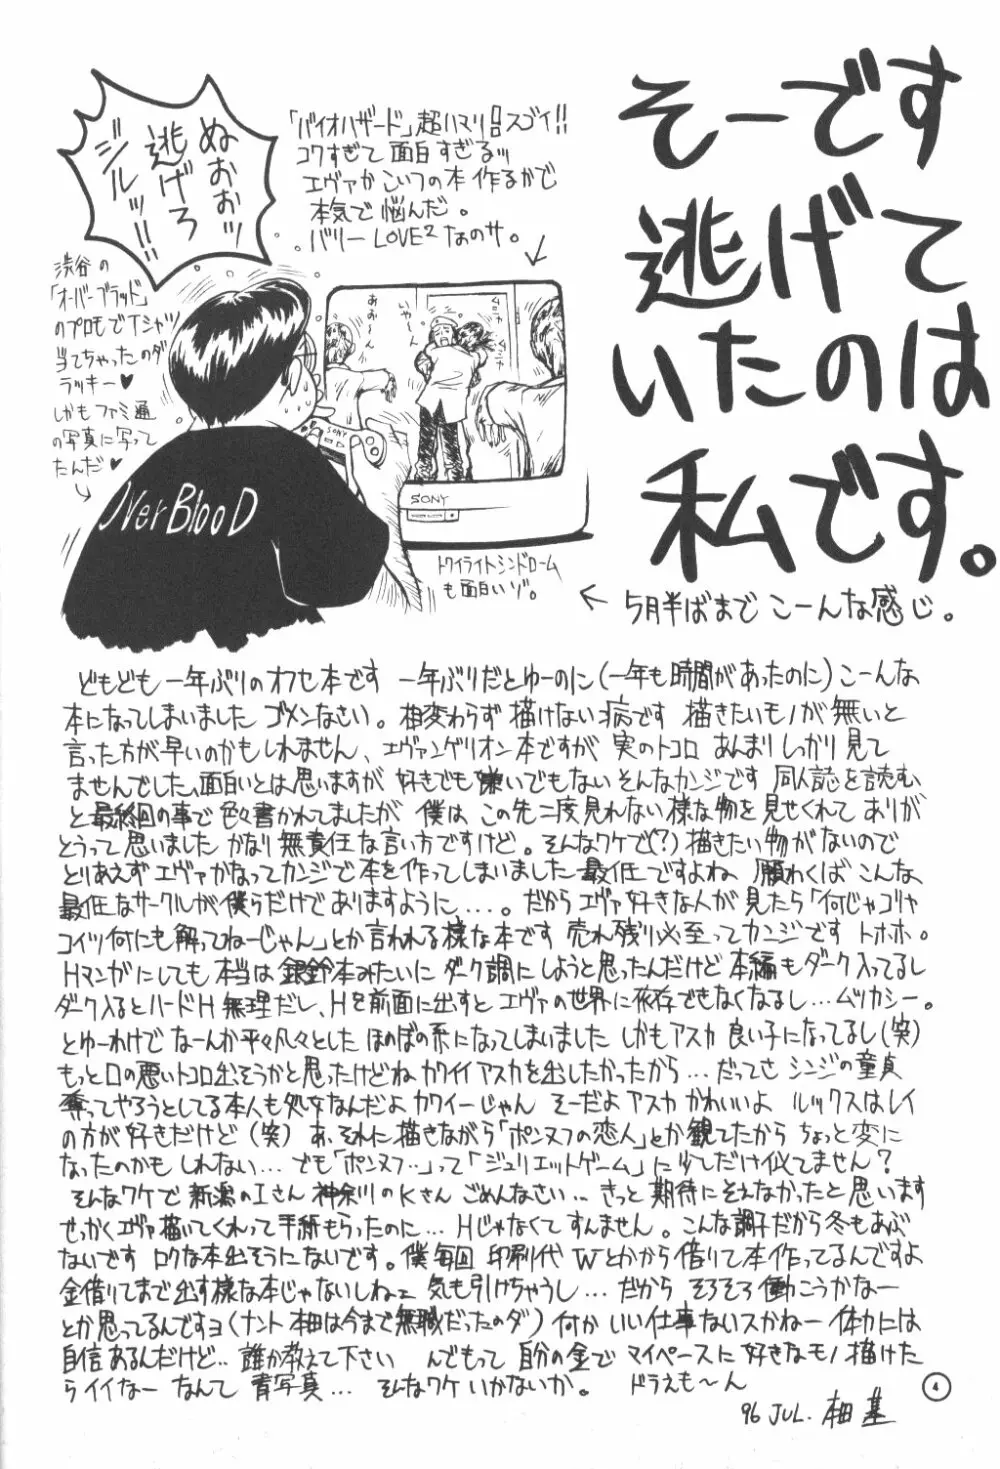 そーです
逃げて
いたのは
私です。
「バイオハザード」超ハマリ!!スゴイ!!
コワすぎて面白すぎるッ
エヴァかこいつの本作るかで
本気で悩んだ。
バリーLOVE2なのサ。
ぬおぉッ
逃げろ
ジルッ!!
渋谷の
「オーバーブラッド」
のプロモでTシャツ
当てちゃったのダ
ラッキー♥
しかもファミ通
の写真に写って
たんだ♥
OverBlooD
SONY
SONY
いやーん
おおーん
トワイライトシンドローム
も面白いゾ。
← 5月半ばまでこーんな感じ。
どもども一年ぶりのオフセ本です 一年ぶりだとゆーのに(一年も時間があったのに)こーんな
本になってしまいました ゴメンなさい。相変わらず描けない病です 描きたいモノが無いと
言った方が早いのかもしれません、エヴァンゲリオン本ですが 実のトコロ あんまりしっかり見て
ませんでした。面白いとは思いますが 好きでも嫌いでもない そんなカンジです 同人誌を読む
と最終回の事で色々書かれてましたが 僕は この先二度見れない様な物を見せくれて ありが
とうって思いました かなり無責任な言い方ですけど。そんなワケで(?)描きたい物がないので
とりあえず エヴァかなってカンジで本を作ってしまいました 最低ーですよね 願わくば こんな
最低なサークルが僕らだけでありますように…。だからエヴァ好きな人が見たら「何じゃゴリャ
コイツ何にも解ってねーじゃん」とか言われる様な本です 売れ残り必至ってカンジです トホホ。
Hマンガにしても 本当は銀鈴本みたいに ダーク調にしようと思ったんだけど 本編もダーク入ってるし
ダーク入るとハードH無理だし、Hを前面に出すと エヴァの世界に依存できなくなるし…ムツカシー。
とゆーわけで なーんか平々凡々とした ほのぼの系になってしまいました しかもアスカ 良い子になってるし(笑)
もっと口の悪いトコロ出そうかと思ったけどね カワイイアスカを出したかったから…だってさ シンジの童貞
奪ってやろうとしてる本人も処女なんだよ カワイーじゃん そーだよ アスカ かわいいよ ルックスはレイ
の方が好きだけど(笑)あ、それに描きながら「ポンヌフの恋人」とか観てたから ちょっと変に
なったのかも しれない…でも「ポンヌフ‥」って「ジュリエットゲーム」に少しだけ似てません?
そんなワケで 新潟のIさん 神奈川のKさん ごめんなさい‥ きっと期待にそえなかったと思います
せっかくエヴァ描いてくれって手紙もらったのに…Hじゃなくてすんません。こんな調子だから冬もあぶ
ないです ロクな本出そうにないです。僕毎回 印刷代 Wとかから借りて本作ってるんですよ
金借りてまで出す様な本じゃないしねェ 気も引けちゃうし…だから そろそろ働こうかなー
とか思ってるんですヨ(ナント 本田は今まで無職だったのダ)何かいい仕事ないスかねー 体力には
自信あるんだけど‥誰か教えて下さい んでもって 自分の金で マイペースに好きなモノ描けた
らイイなー なんて 青写真… そんなワケいかないか。 ドラえも〜ん
4
96 JUL. 本田 基